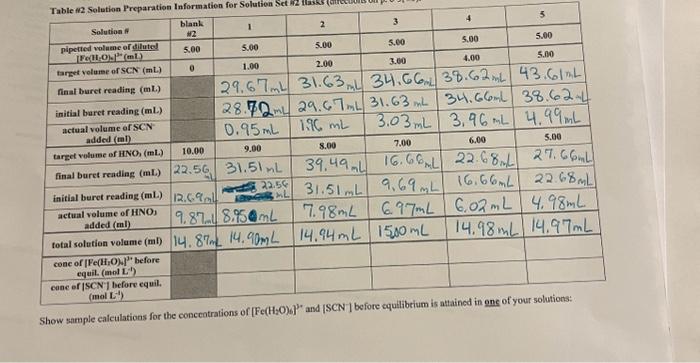 Table #2 Solution Preparation Information for Solution Set #2 flasks
Solution # blank #2 1 2 3 4 5
pipetted volume of diluted [Fe(H₂O)₆]³⁺ (mL) 5.00 5.00 5.00 5.00 5.00 5.00
target volume of SCN⁻ (mL) 0 1.00 2.00 3.00 4.00 5.00
final buret reading (mL) 29.67mL 31.63mL 34.66mL 38.62mL 43.61mL
initial buret reading (mL) 28.72mL 29.67mL 31.63mL 34.66mL 38.62mL
actual volume of SCN⁻ added (ml) 0.95mL 1.96 mL 3.03mL 3.96mL 4.99mL
target volume of HNO₃ (mL) 10.00 9.00 8.00 7.00 6.00 5.00
final buret reading (mL) 22.56mL 31.51mL 39.49mL 16.66mL 22.68mL 27.66mL
initial buret reading (mL) 12.69mL 22.56mL 31.51mL 9.69mL 16.66mL 22.68mL
actual volume of HNO₃ added (ml) 9.87mL 8.95mL 7.98mL 6.97mL 6.02mL 4.98mL
total solution volume (ml) 14.87mL 14.90mL 14.94mL 15.00mL 14.98mL 14.97mL
conc of [Fe(H₂O)₆]³⁺ before equil. (mol L⁻¹)
conc of [SCN⁻] before equil. (mol L⁻¹)
Show sample calculations for the concentrations of [Fe(H₂O)₆]³⁺ and [SCN⁻] before equilibrium is attained in one of your solutions: